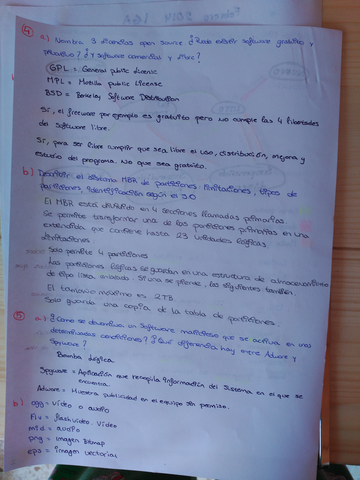 ④ a) Nombra 3 licencias open source ¿Puede existir software gratuito y
privativo? ¿Y software comercial y libre?
GPL = General public license
MPL = Mozilla public License
BSD = Berkeley Software Distribution
Sí, el freeware por ejemplo es gratuito pero no cumple las 4 libertades
del software libre.
Sí, para ser libre cumplir que sea libre el uso, distribución, mejora y
estudio del programa. No que sea gratuito.
b) Describir el sistema MBR de particiones: limitaciones, tipos de
particiones, identificación según el S.O
El MBR está dividido en 4 secciones llamadas primarias.
Se permite transformar una de las particiones primarias en una
extendida que contiene hasta 23 unidades lógicas.
Limitaciones
Solo permite 4 particiones
Las particiones lógicas se guardan en una estructura de almacenamiento
de tipo lista enlazada. Si una se pierde, las siguientes también.
El tamaño máximo es 2TB
Solo guarda una copia de la tabla de particiones.
⑤ a) ¿Cómo se denomina un software malicioso que se activa en unas
determinadas condiciones? ¿Qué diferencia hay entre Adware y
Spyware?
Bomba lógica
Spyware = Aplicación que recopila información del sistema en el que se
encuentra
Adware = Muestra publicidad en el equipo sin permiso.
b) ogg = video o audio
Flv = flash video. Video
mid = audio
png = imagen bitmap
eps = imagen vectorial